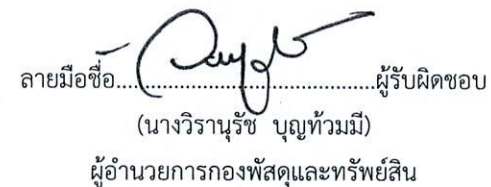 ลายมือชื่อ........................................ผู้รับผิดชอบ
(นางวิรานุรัช บุญท้วมมี)
ผู้อำนวยการกองพัสดุและทรัพย์สิน